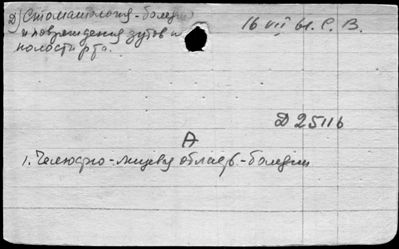 2) Стоматология - болезни
и повреждения зубов и
полости рта.
16 VII 61. С. В.
Д 25116
А
1. Челюстно-лицевая область - болезни